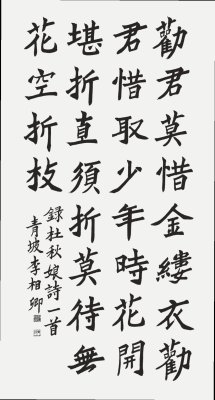 勸君莫惜金縷衣勸
君惜取少年時花開
堪折直須折莫待無
花空折枝
錄杜秋娘詩一首
青坡李相卿